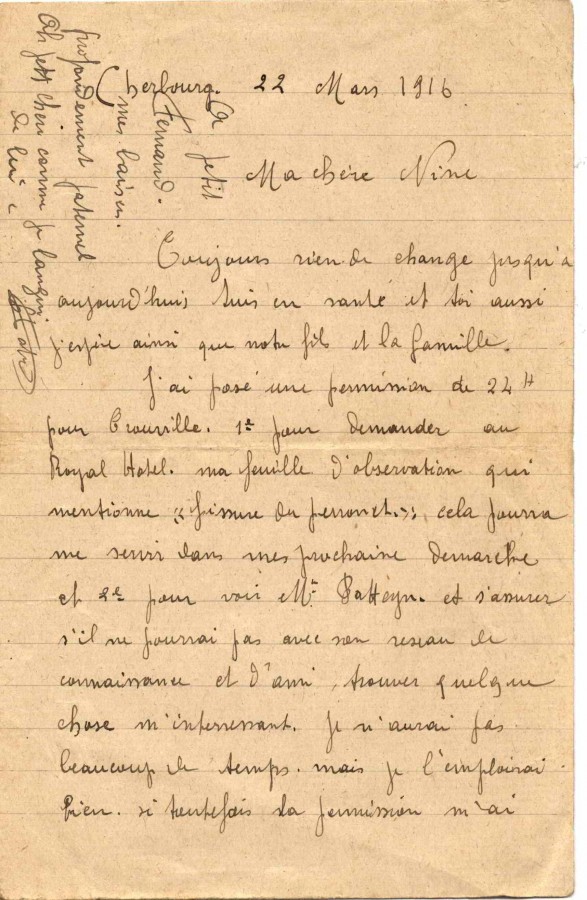 Cherbourg. 22 Mars 1916
Ma chère Nine
Toujours rien de change jusqu'a
aujourd'hui, suis en santé et toi aussi
j'espère ainsi que notre fils et la famille.
J'ai posé une permission de 24 H
pour Trouville. 1º pour demander au
Royal Hotel. ma feuille d'observation qui
mentionne « fissure du perronet. » cela pourra
me servir dans mes prochaine demarche
et 2º pour voir Mr et s'assurer
s'il ne pourrai pas avec son reseau de
connaissance et d'ami, trouver quelque
chose m'interressant. Je n'aurai pas
beaucoup de temps. mais je l'emploirai
bien. si toutefois la permission m'ai
A petit
Fernand.
mes baisers.
profondement paternel
Ah petit cheri comme je languis
de lui